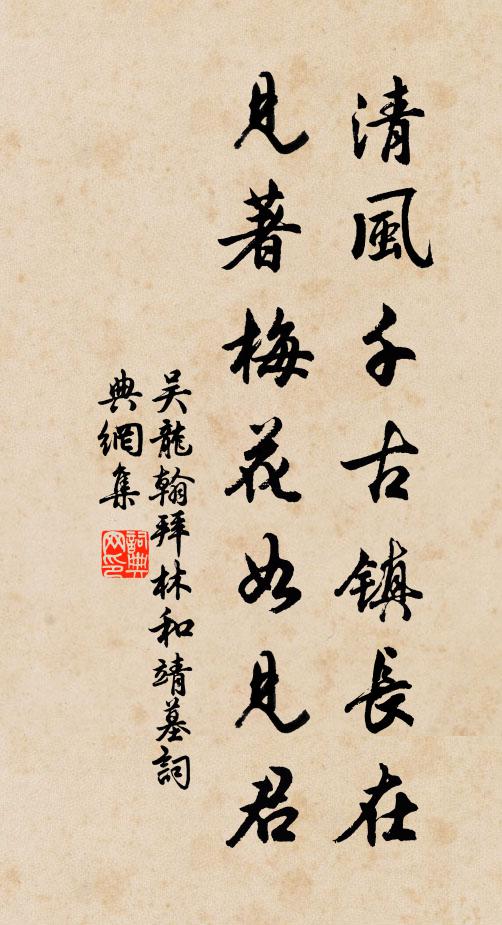 清風千古鎮長在
見著梅花如見君
吳龍翰拜林和靖墓詞
典網集
詞典
网印